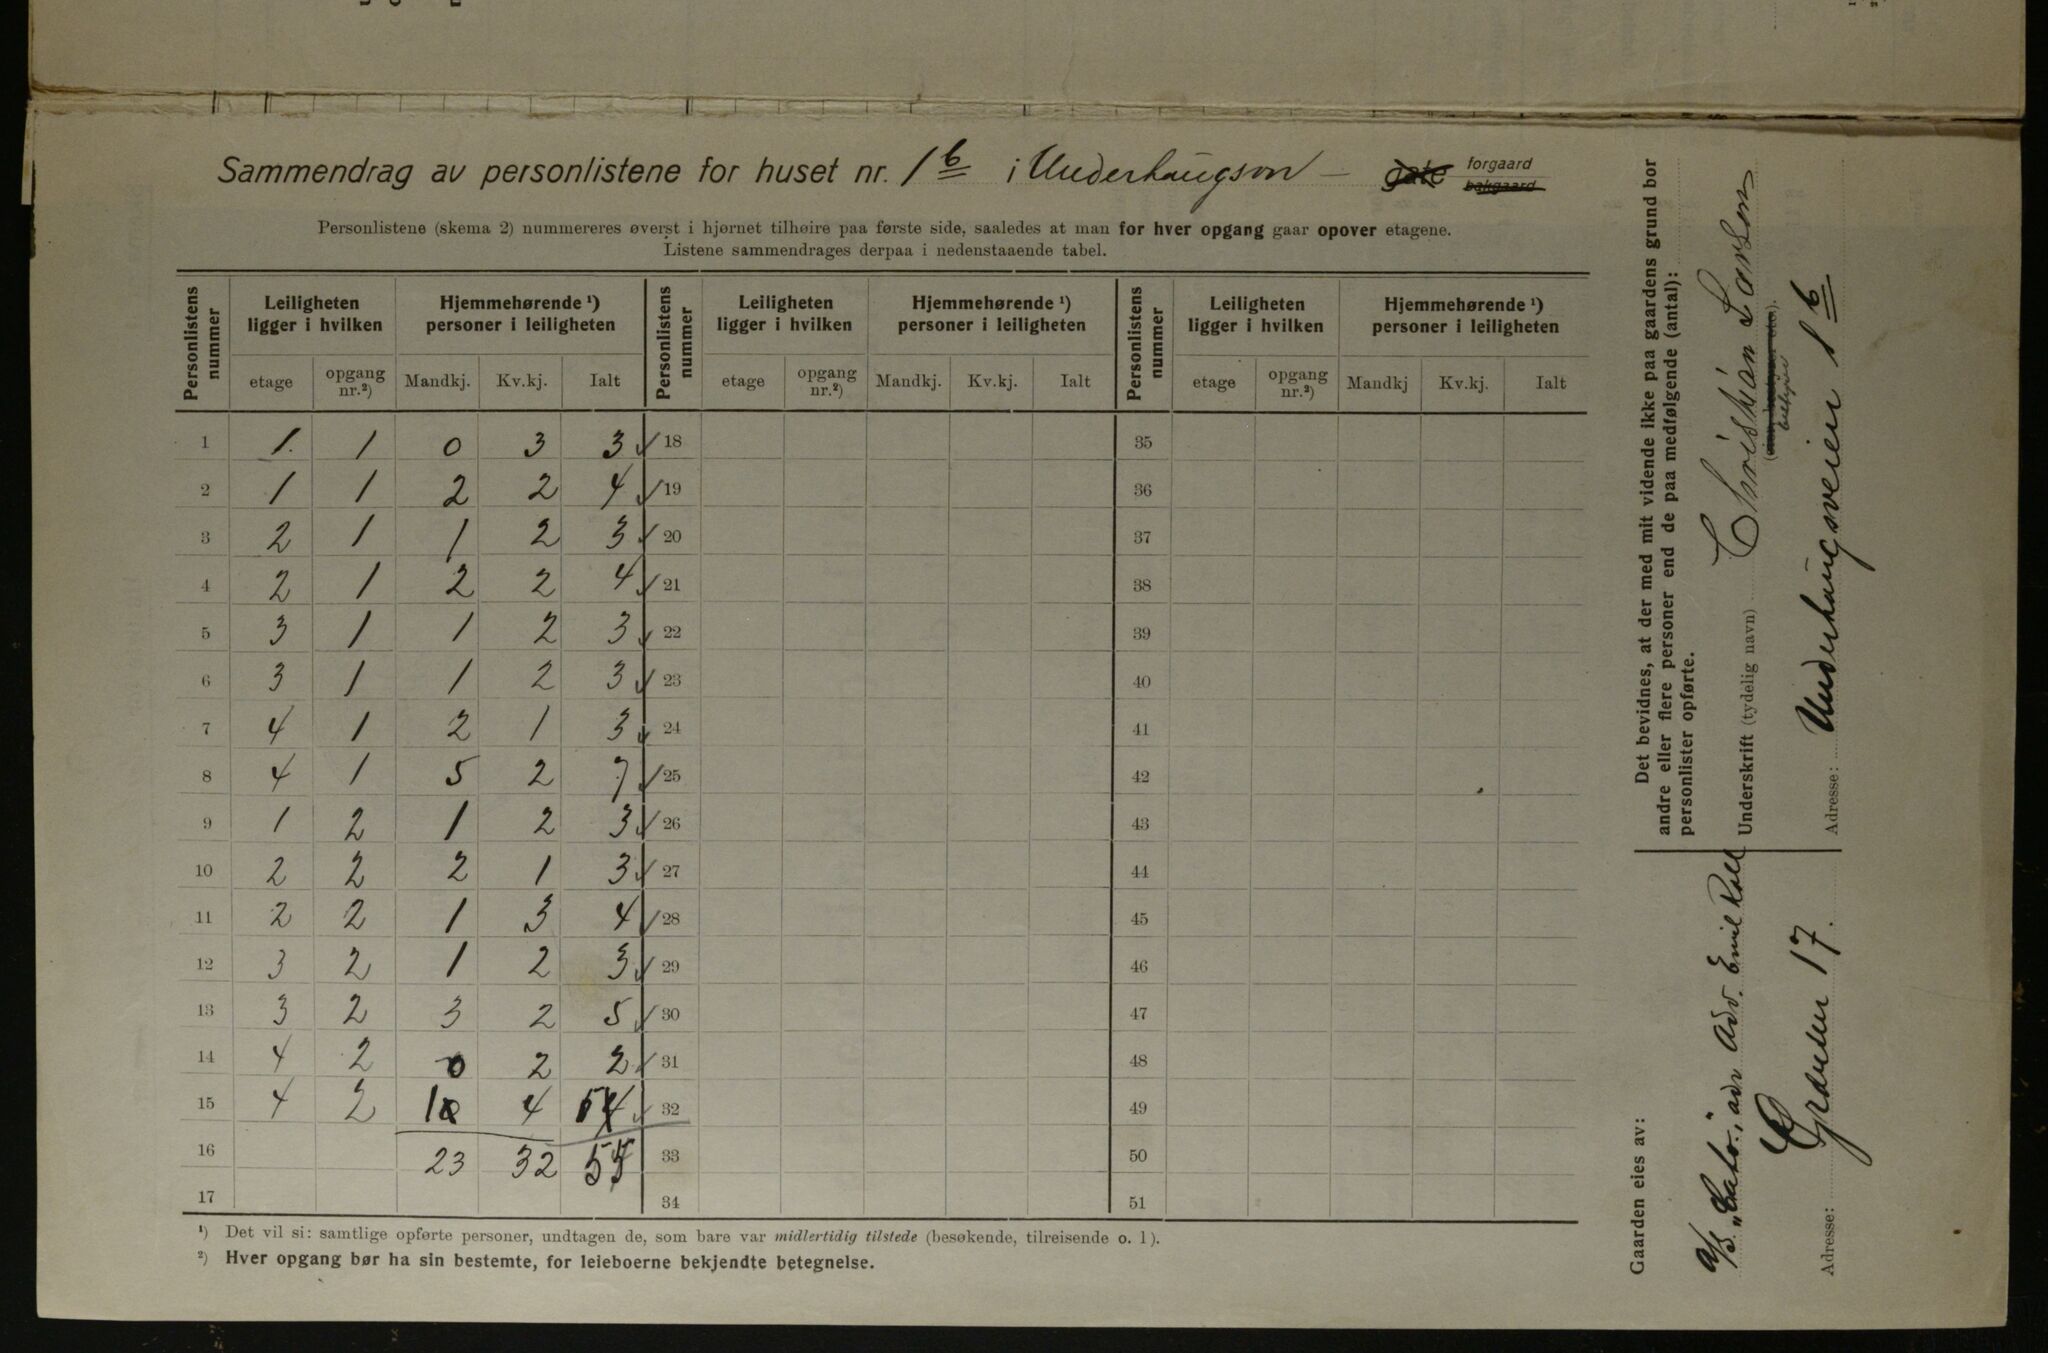 Sammendrag av personlistene for huset nr. 1b i Underhaugsvn – gate forgaard bakgaard
Personlistene (skema 2) nummereres øverst i hjørnet tilhøire paa første side, saaledes at man for hver opgang gaar opover etagene.
Listene sammendrages derpaa i nedenstaaende tabel.
Personlistens nummer | Leiligheten ligger i hvilken | Hjemmehørende ¹) personer i leiligheten | Personlistens nummer | Leiligheten ligger i hvilken | Hjemmehørende ¹) personer i leiligheten | Personlistens nummer | Leiligheten ligger i hvilken | Hjemmehørende ¹) personer i leiligheten
etage | opgang nr.²) | Mandkj. | Kv.kj. | Ialt | etage | opgang nr.²) | Mandkj. | Kv.kj. | Ialt | etage | opgang nr.²) | Mandkj | Kv.kj. | Ialt
1 | 1. | 1 | 0 | 3 | 3 ✓ | 18 | 35
2 | 1 | 1 | 2 | 2 | 4 ✓ | 19 | 36
3 | 2 | 1 | 1 | 2 | 3 ✓ | 20 | 37
4 | 2 | 1 | 2 | 2 | 4 ✓ | 21 | 38
5 | 3 | 1 | 1 | 2 | 3 ✓ | 22 | 39
6 | 3 | 1 | 1 | 2 | 3 ✓ | 23 | 40
7 | 4 | 1 | 2 | 1 | 3 ✓ | 24 | 41
8 | 4 | 1 | 5 | 2 | 7 ✓ | 25 | 42
9 | 1 | 2 | 1 | 2 | 3 ✓ | 26 | 43
10 | 2 | 2 | 2 | 1 | 3 ✓ | 27 | 44
11 | 2 | 2 | 1 | 3 | 4 ✓ | 28 | 45
12 | 3 | 2 | 1 | 2 | 3 ✓ | 29 | 46
13 | 3 | 2 | 3 | 2 | 5 ✓ | 30 | 47
14 | 4 | 2 | 0 | 2 | 2 ✓ | 31 | 48
15 | 4 | 2 | 1 | 4 | 5 ✓ | 32 | 49
16 | 23 | 32 | 55 | 33 | 50
17 | 34 | 51
¹) Det vil si: samtlige opførte personer, undtagen de, som bare var midlertidig tilstede (besøkende, tilreisende o. l).
²) Hver opgang bør ha sin bestemte, for leieboerne bekjendte betegnelse.
Det bevidnes, at der med mit vidende ikke paa gaardens grund bor
andre eller flere personer end de paa medfølgende (antal):
personlister opførte.
Underskrift (tydelig navn) Christian Larsen
(eier, bestyrer etc).
bestyrer
Adresse: Underhaugsveien 1b
Gaarden eies av:
A/S. „Cato.", adr Adv. Emil Roll
Adresse: Grænsen 17.